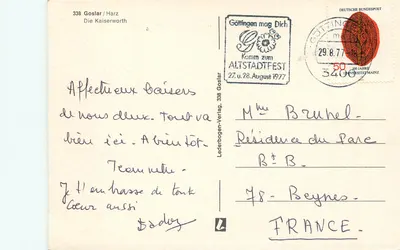 338 Goslar / Harz
Die Kaiserworth
Göttingen mag Dich
Komm zum
ALTSTADTFEST
27. u. 28. August 1977
GÖTTINGEN
29.8.77
3400
DEUTSCHE BUNDESPOST
50
Lederbogen-Verlag, 338 Goslar
Affectueux baisers
de nous deux. Tout va
bien ici. A bientôt.
Je t'embrasse de tout
cœur aussi
Mme Brunel
Résidence du Parc
Bt B.
78 - Beynes.
FRANCE.